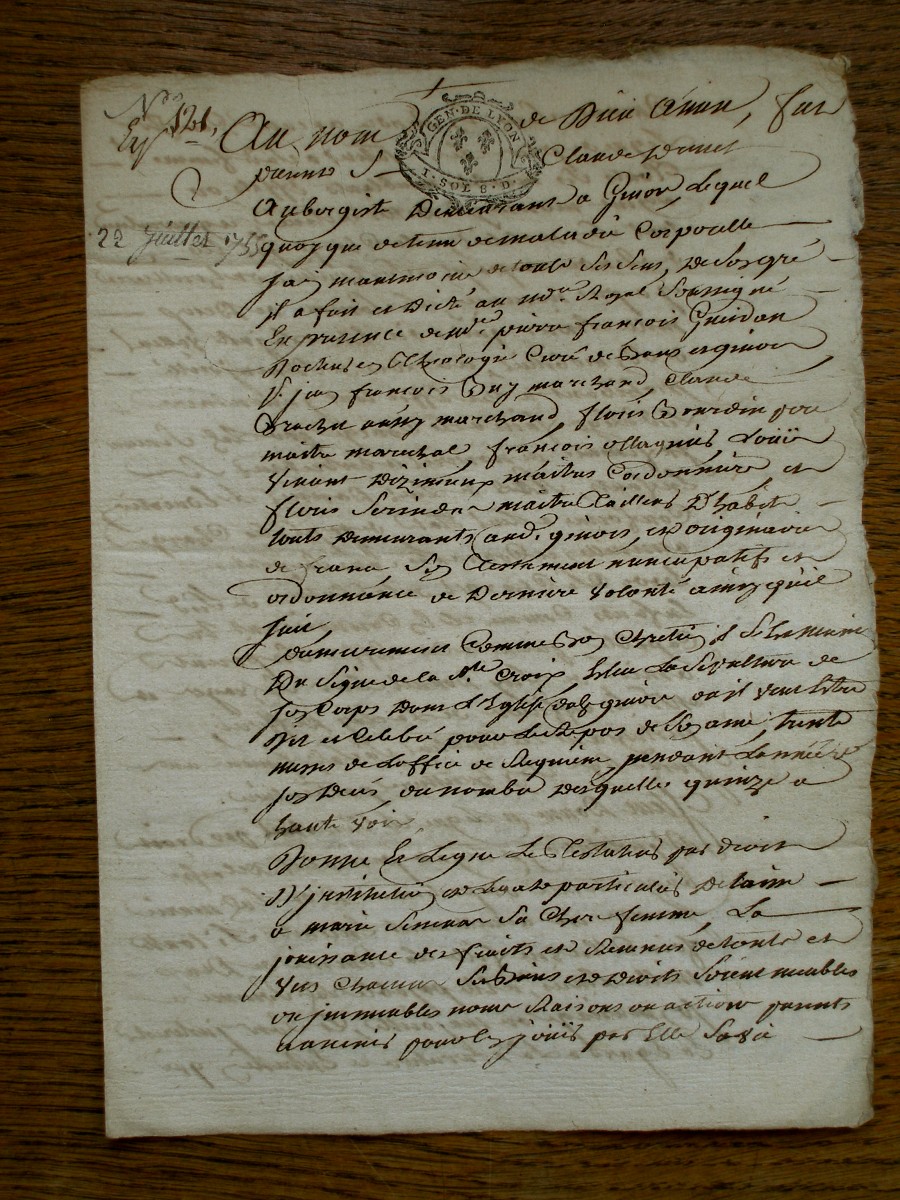 N°
Exp 1201,
Au nom de Dieu Amen, fut
GEN. DE LYON
1. SOL 8. D.
présent S Claude
Aubergiste Demeurant a Givors Lequel
22 juillet 1755
quoyque detenu de maladie Corporelle
sain memoire de touts ses sens, De son gré
il a fait et Dicté au no.re Royal soussigné
En presence de m.re pierre françois Guerdan
Docteur en Theologie Curé de et givors
S. jean françois Guy marchand, claude
aussy marchand, floris Bourdin
maitre marechal, françois ollagnier, Loüis
vincent Dizimieux maitres Cordonnier et
floris maitre Tailleur D'habits
touts Demeurants aud. givors, et originaire
de france son Testament nuncupatif et
ordonnance de Derniere volonté ainsy quil
suit
premierement Comme bon Chretien il
Du signe de la S.te Croix, Esleu La sepulture de
son Corps Dans L'Eglise dud. givors ou il veut Estre
Dit et Celebré pour le Repos de son ame, trente
messes de L'office de Requiem, pendant L'année de
son Deces, du nombre desquelles quinze a
haute voix
Donne Et Legue Le Testateur par droit
D'institution et Legat particulier
a marie sa Chere femme, La
jouissance des fruits et Revenus de touts et
uns Chacuns ses Biens et Droits soient meubles
ou immeubles noms Raisons ou actions presents
et avenir pour En joüir par Elle sa vie